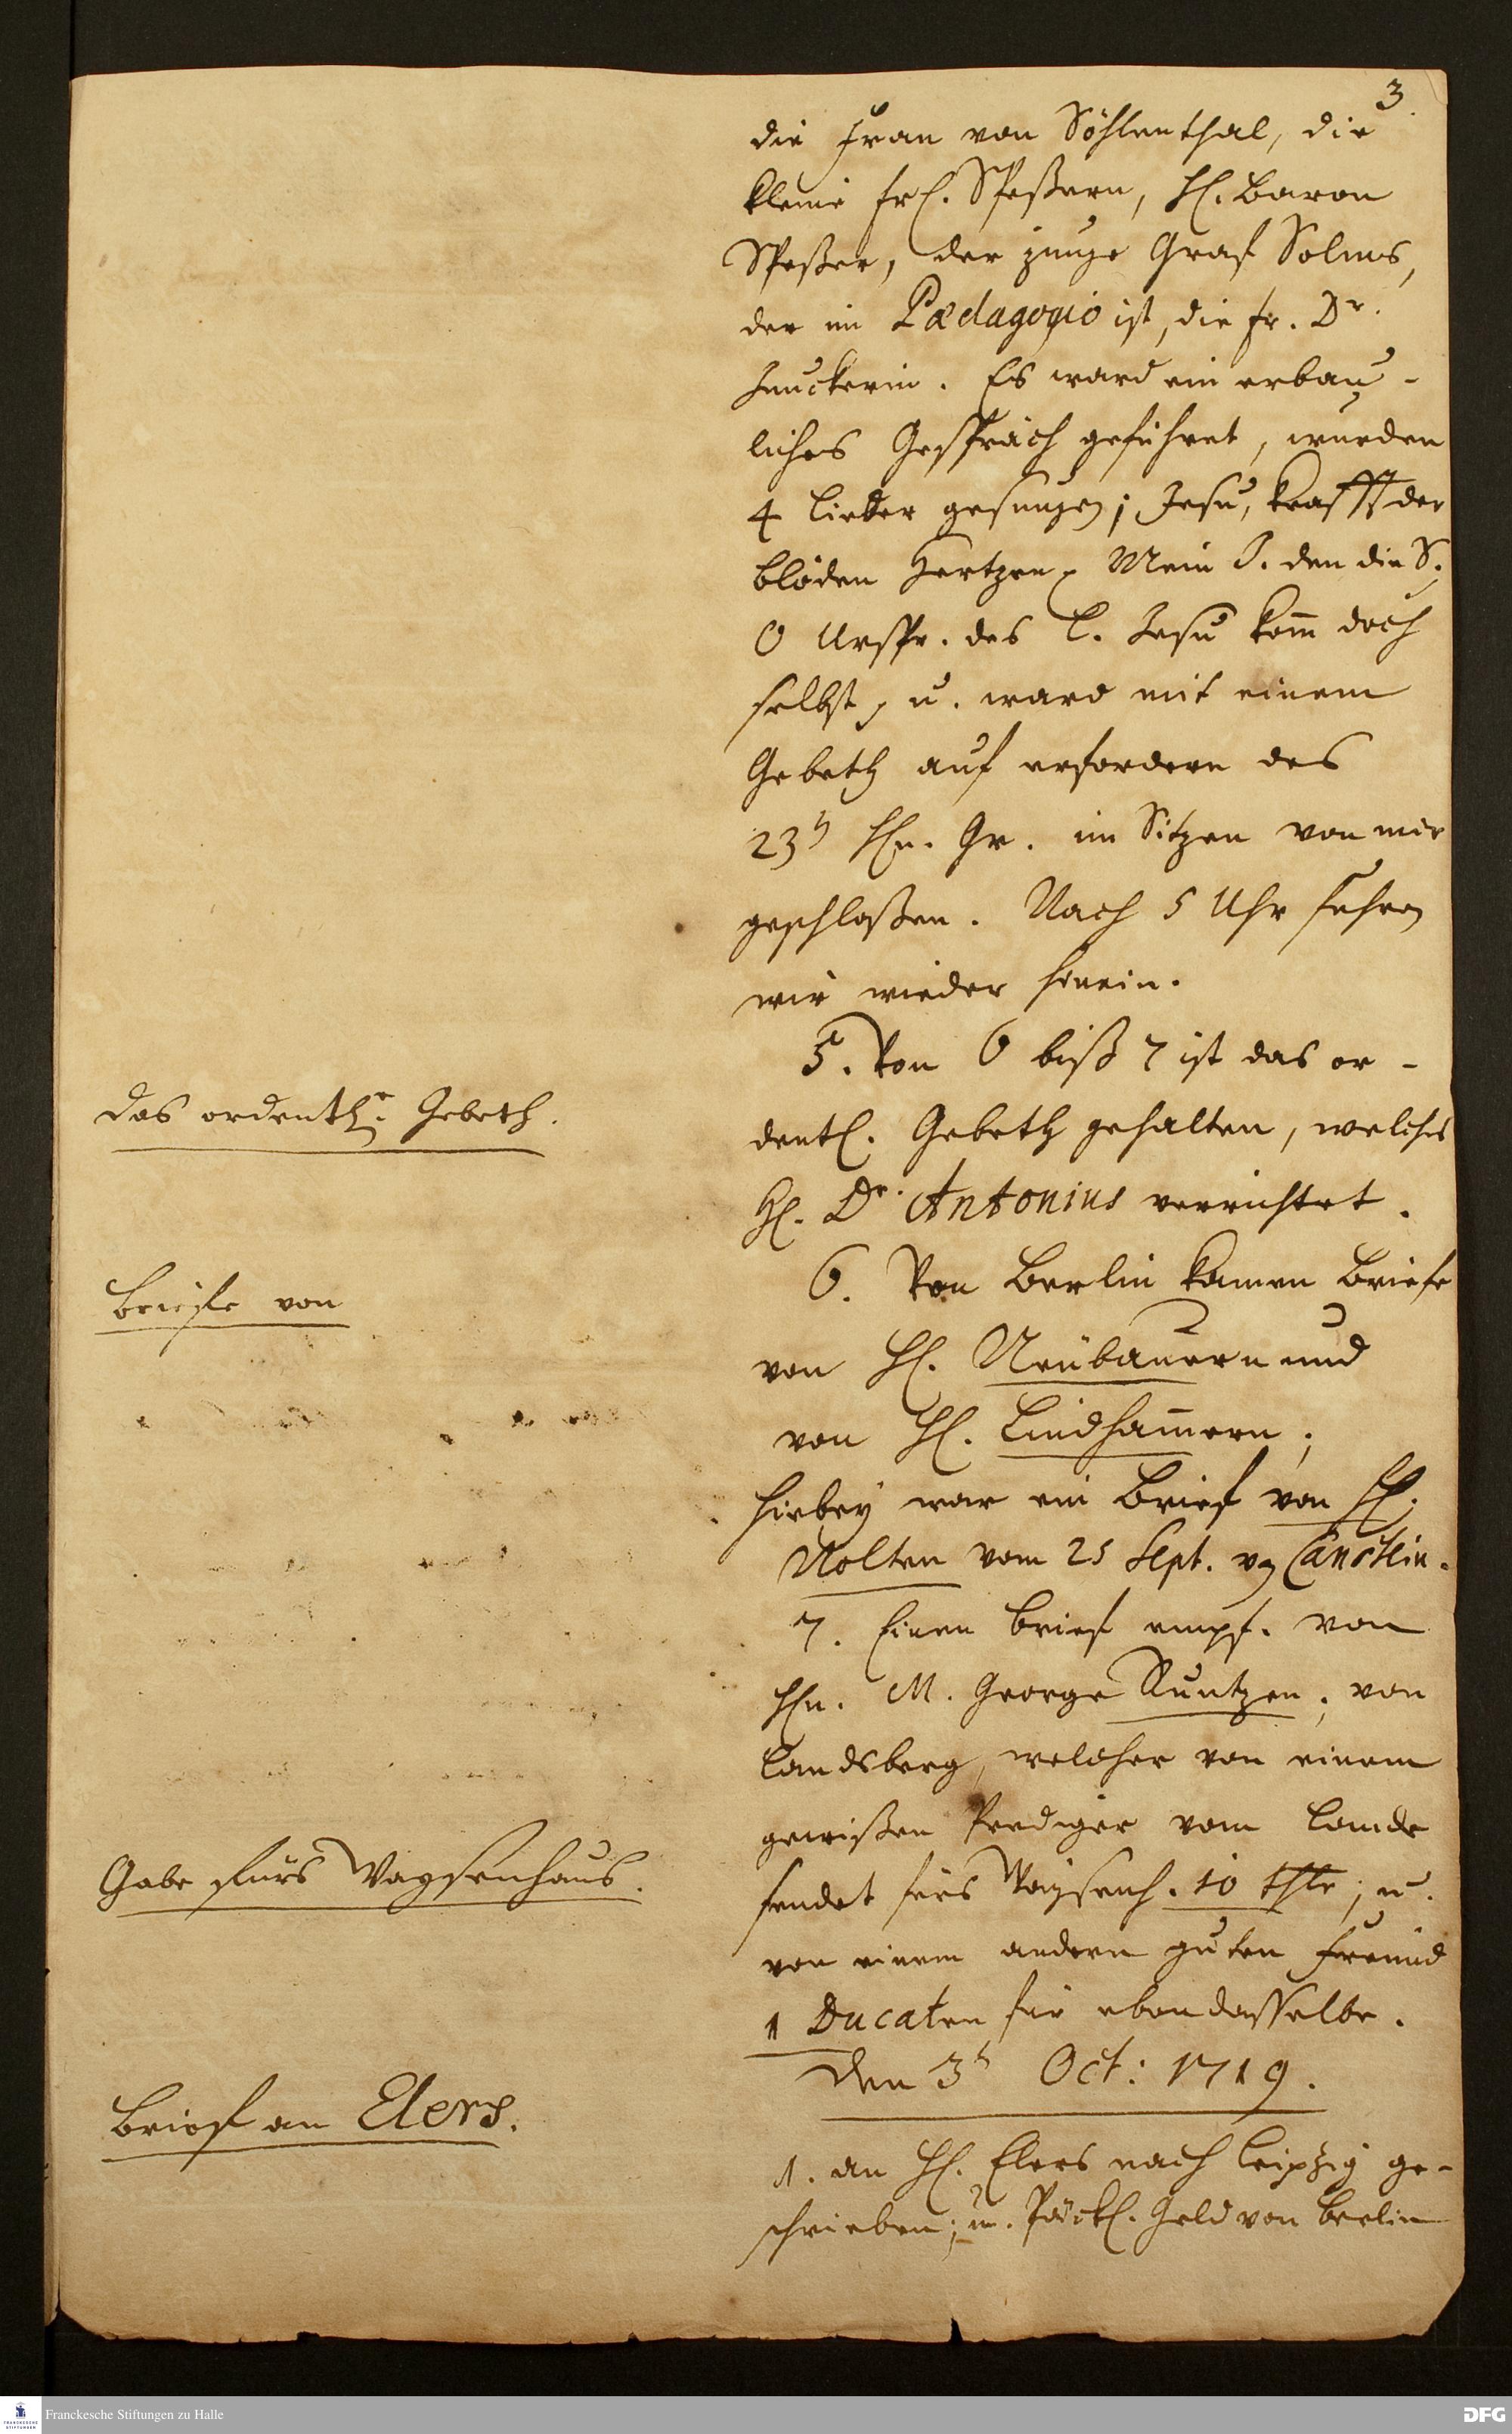 3.
die Frau von Söhlenthal, die
kleine Frl. Speßern, H. Baron
Speßer, der junge Graf Solms,
der im Pædagogio ist, die Fr. Dr.
Junckerin. Es ward ein erbau-
liches Gespräch geführet, wurden
4 Lieder gesungen; Jesu, Krafft der
blöden Hertzen, Mein J. den die S.
O Urspr. des L. Jesu kom̄ doch
selbst, u. ward mit einem
Gebeth auf erfordern des
23t Hn. Gr. im Sitzen von mir
geschloßen. Nach 5 Uhr fuhren
wir wieder herein.
5. Von 6 biß 7 ist das or-
das ordentl. Gebeth.
dentl. Gebeth gehalten, welches
H. Dr. Antonius verrichtet.
6. Von Berlin kamen Briefe
Briefe von
von H. Neübauern und
von H. Lindham̄ern;
hiebey war ein Brief von H.
Nolten vom 25 Sept. von Canstein.
7. Einen Brief empf. von
Hn. M. George Kuntzen, von
Landsberg, welcher von einem
gewißen Prediger vom Lande
Gabe fürs Waysenhaus.
sendet fürs Waysenh. 10 thlr; u.
von einem andern guten Freund
1 Ducaten für ebendasselbe.
Den 3t Oct: 1719.
Brief an Elers.
1. an H. Elers nach Leipzig ge-
schrieben; u. Päckl. Geld von Berlin
Franckesche Stiftungen zu Halle
DFG